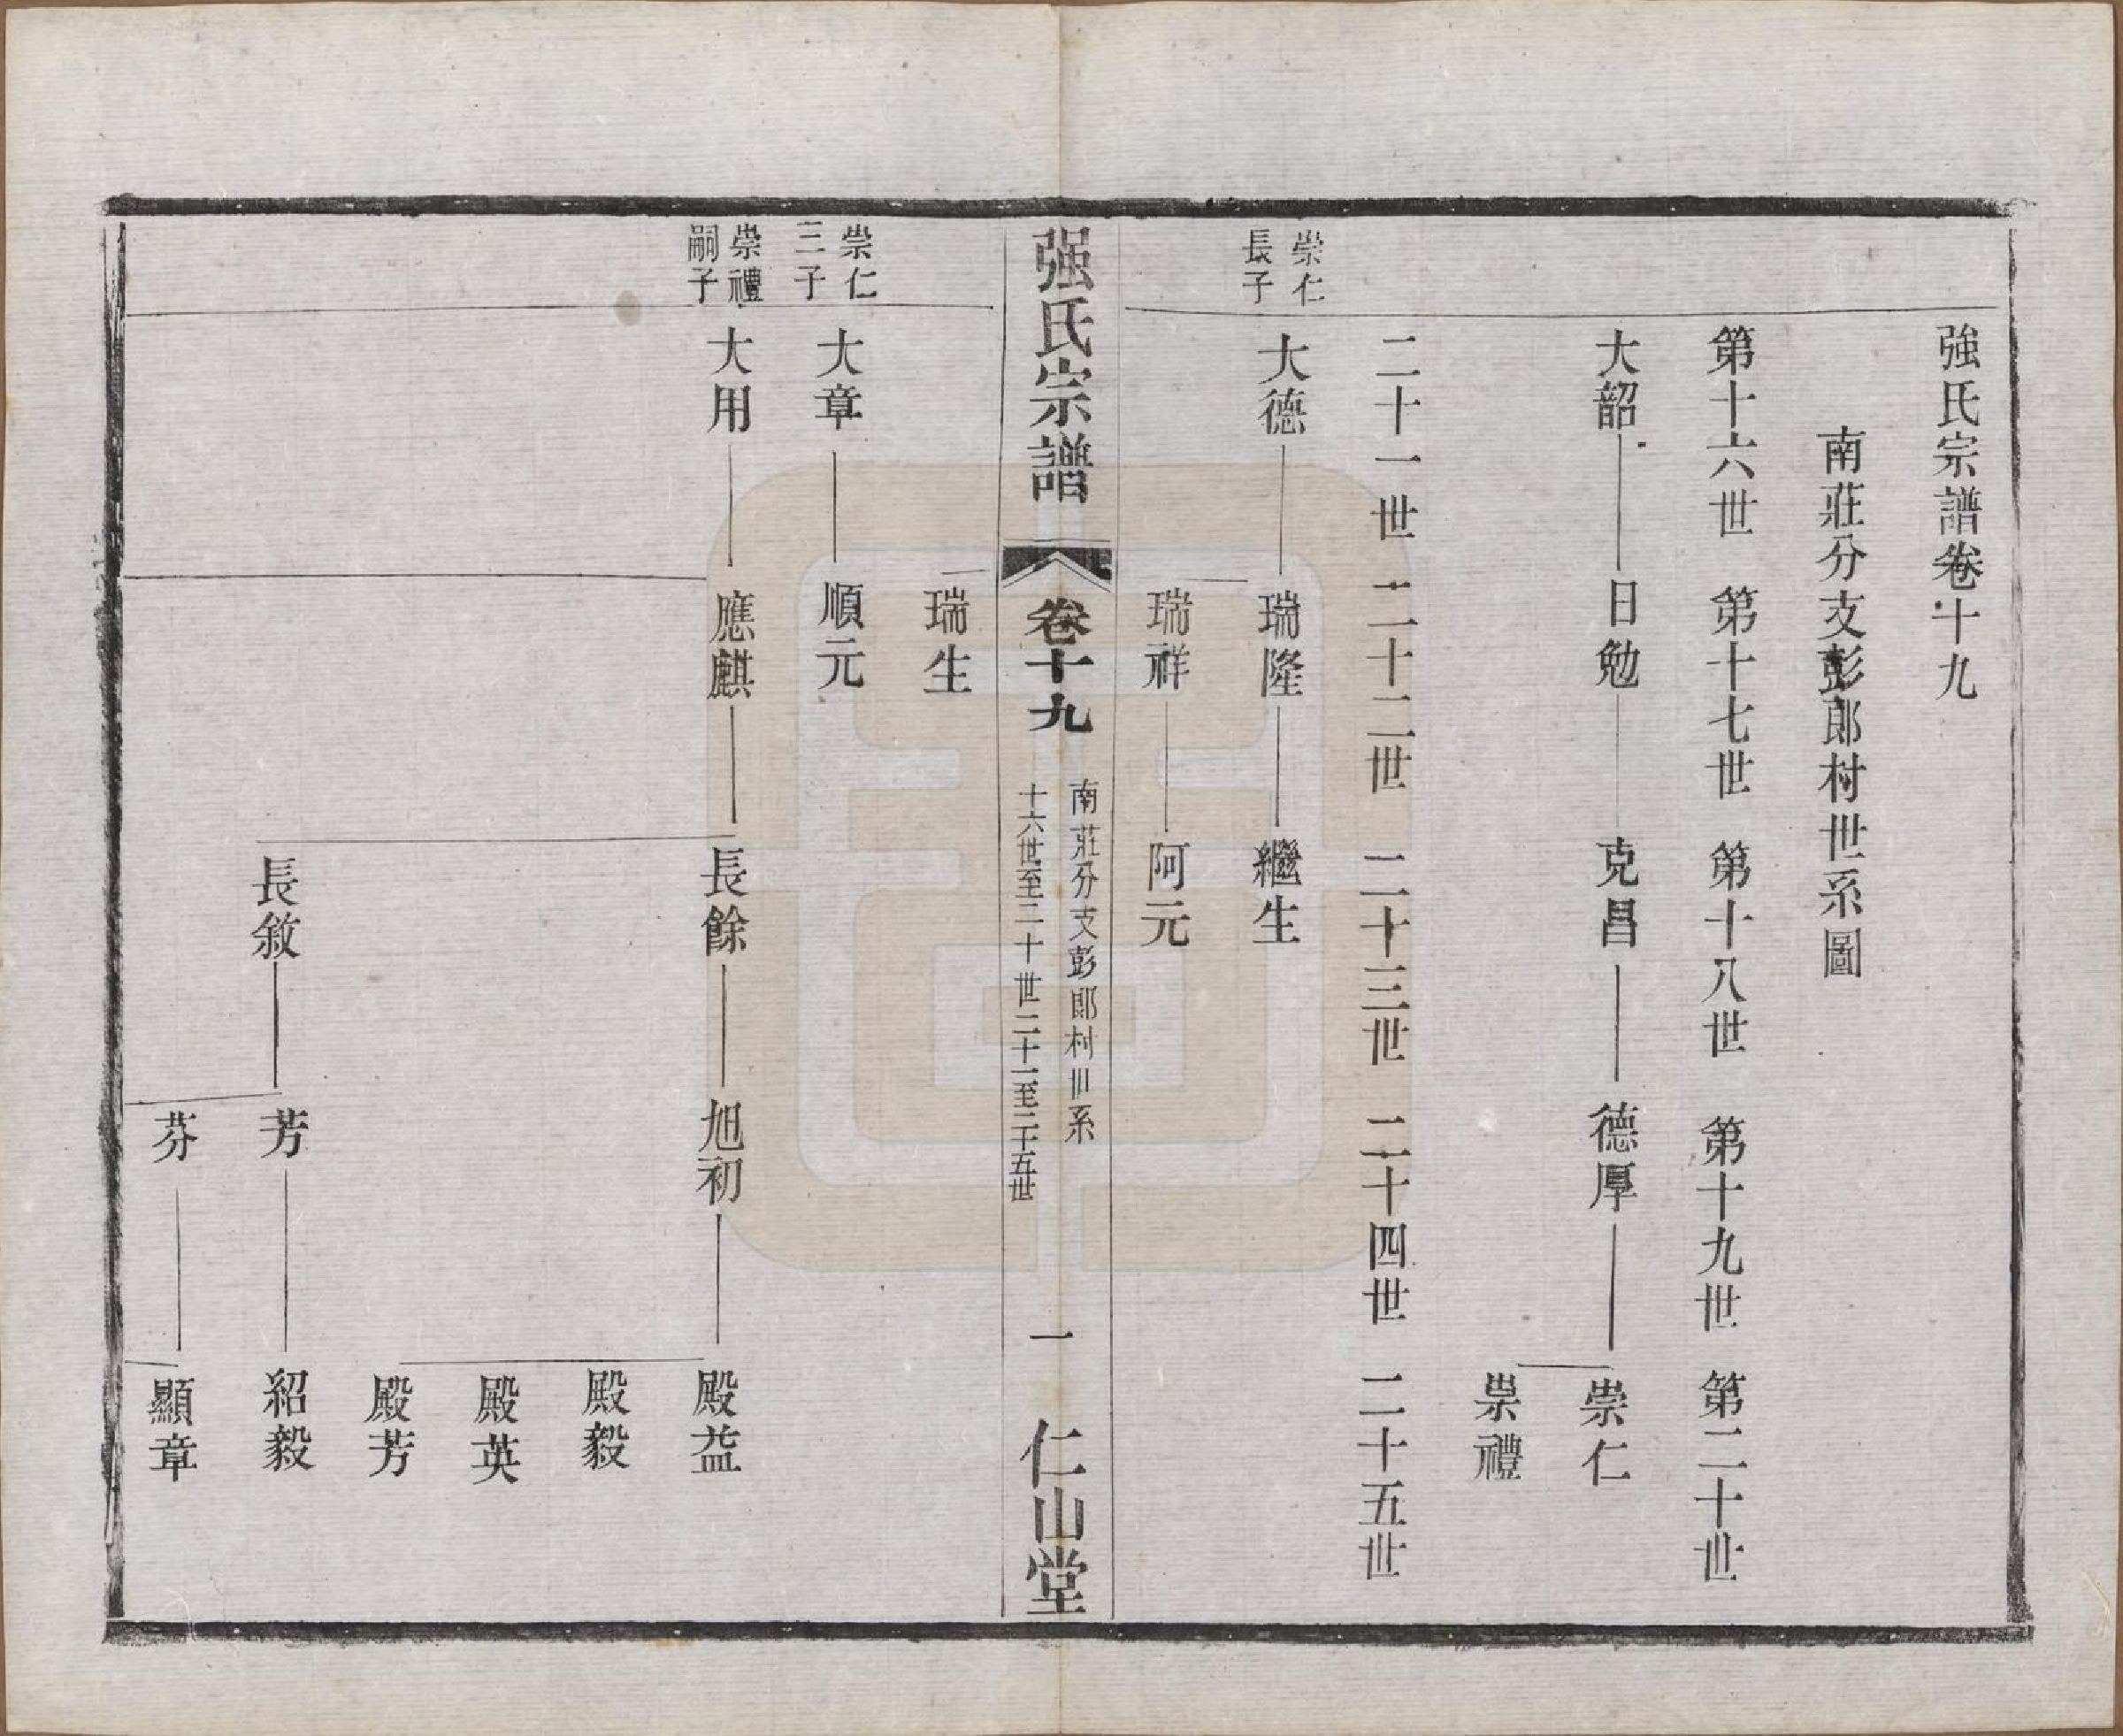 強氏宗譜卷十九
南莊分支彭郎村世系圖
第十六世 第十七世 第十八世 第十九世 第二十世
大韶 日勉 克昌 德厚 崇仁
崇禮
二十一世 二十二世 二十三世 二十四世 二十五世
崇仁
長子
大德 瑞隆 繼生
瑞祥 阿元
强氏宗譜 卷十九
南莊分支彭郎村世系
十六世至二十世二十一至二十五世
一 仁山堂
瑞生
崇仁
三子
大章 順元
崇禮
嗣子
大用 應麒 長餘 旭初 殿益
殿毅
殿英
殿芳
長敘 芳 紹毅
芬 顯章